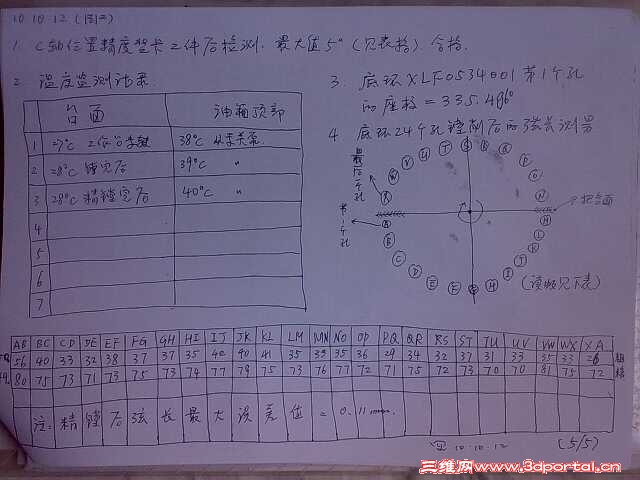 10.10.12 (周二)
1. C轴位置精度登卡工件后检测. 最大值5" (见表格) 合格.
2 温度监测记录
台面 油箱顶部
1 27℃ 38℃
2 28℃ 镗完后 39℃ "
3 28℃ 精镗完后 40℃ "
4
5
6
7
3. 底环XLF0534001第1个孔
的座标=335.486°
4 底环24个孔镗削后的弦长测量
(读数见下表)
AB BC CD DE EF FG GH HI IJ JK KL LM MN NO OP PQ QR RS ST TU UV VW WX XA
56 40 33 32 38 37 37 35 40 41 35 35 35 36 29 34 32 37 31 33 35 33 26 粗
80 75 73 71 73 75 73 74 77 79 75 73 76 77 72 71 75 72 73 70 70 81 75 72 精
注: 精镗后弦长最大误差值=0.11mm.
10.10.12
(5/5)
三维网www.3dportal.cn